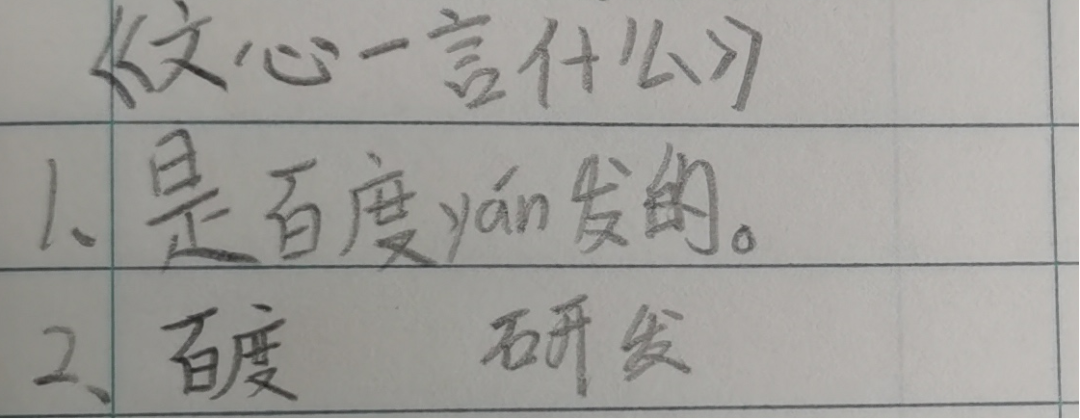 《文心一言什么》
1、是百度yán发的。
2、百度 研发